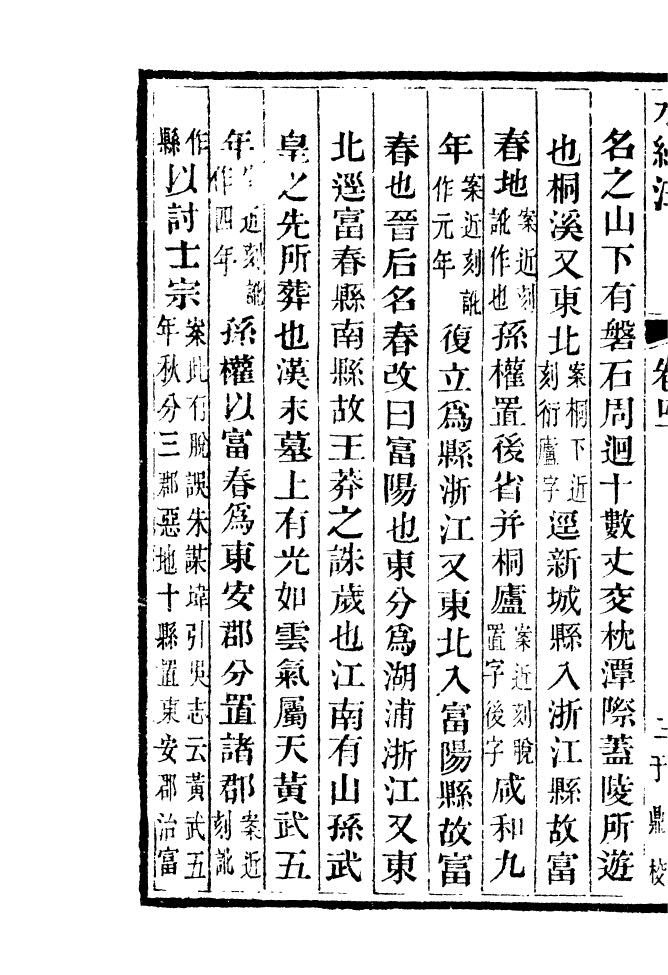 水經注 卷四 王于鼎校
名之山下有磐石周迴十數丈交枕潭際蓋陵所遊
也桐溪又東北案桐下近刻衍廬字逕新城縣入浙江縣故富
春地案近刻訛作也孫權置後省并桐廬案近刻脫置字後字咸和九
年案近刻訛作元年復立爲縣浙江又東北入富陽縣故富
春也晉后名春改曰富陽也東分爲湖浦浙江又東
北逕富春縣南縣故王莽之誅歲也江南有山孫武
皇之先所葬也漢末墓上有光如雲氣屬天黃武五
年案近刻訛作四年孫權以富春爲東安郡分置諸郡案近刻訛
作縣以討士宗案此有脫誤朱謀㙔引吳志云黃武五年秋分三郡惡地十縣置東安郡治富